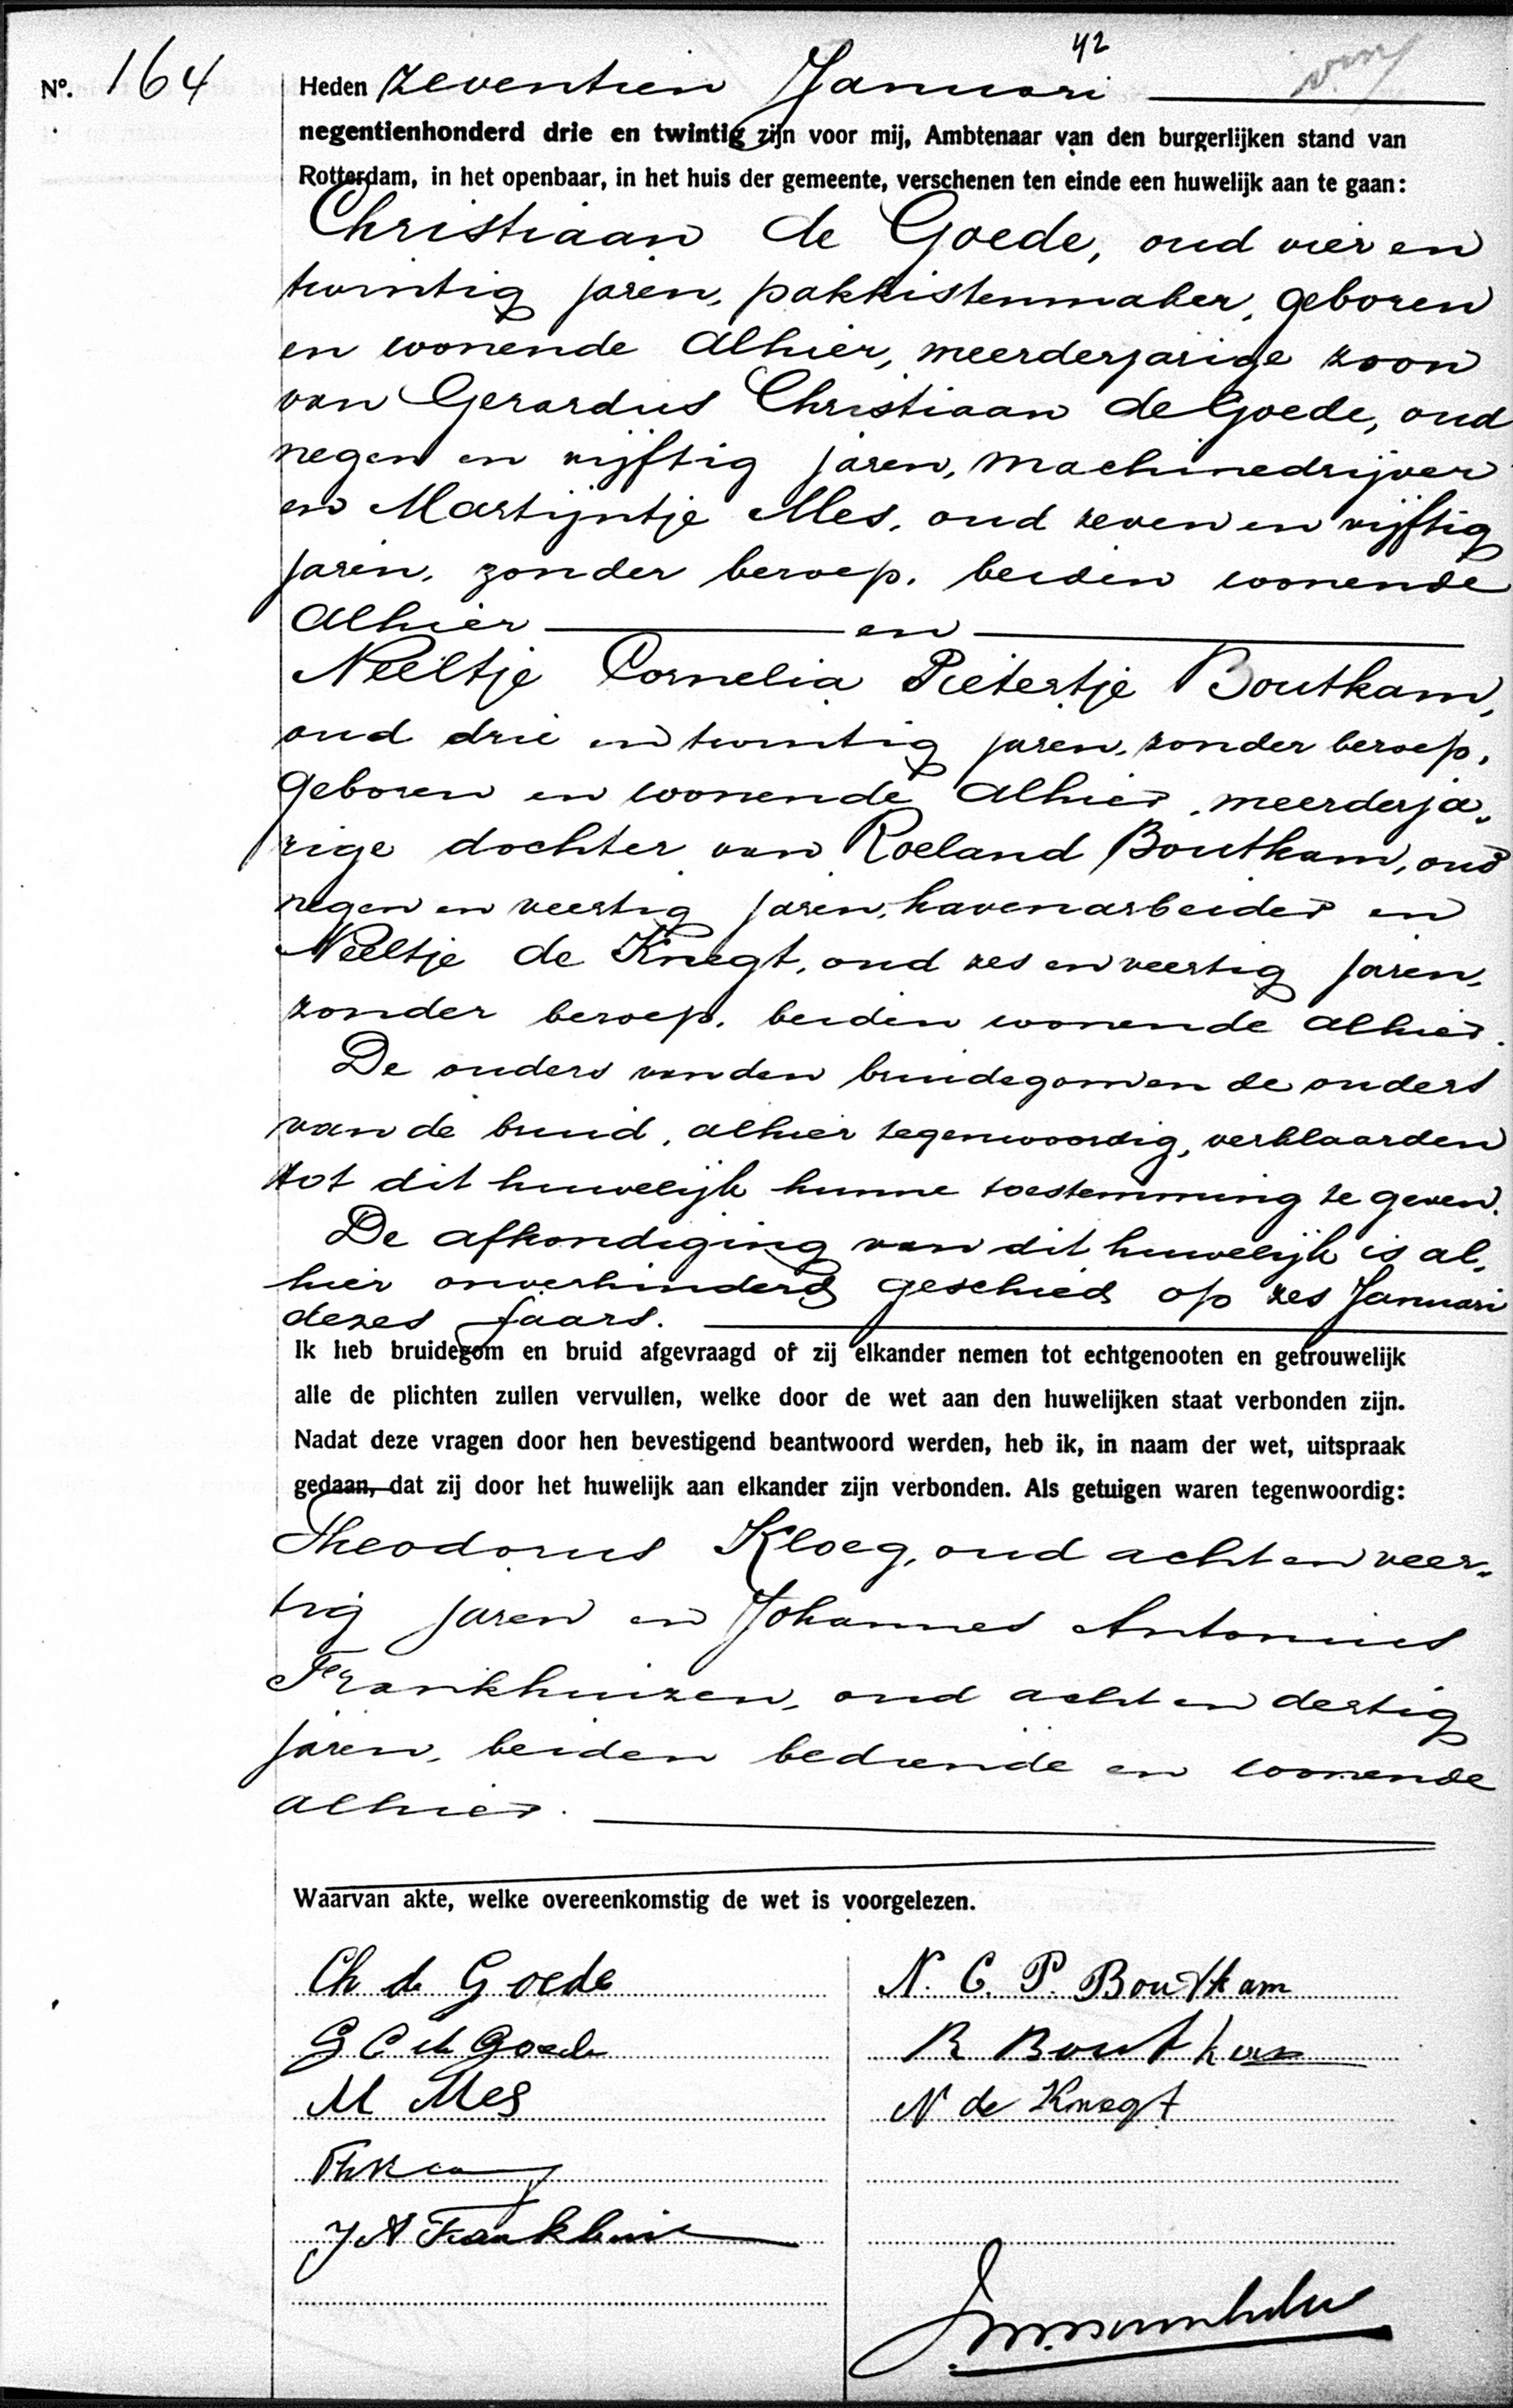 42
Nº. 164
Heden zeventien Januari
negentienhonderd drie en twintig zijn voor mij, Ambtenaar van den burgerlijken stand van
Rotterdam, in het openbaar, in het huis der gemeente, verschenen ten einde een huwelijk aan te gaan:
Christiaan de Goede, oud vier en
twintig jaren, pakkistenmaker, geboren
en wonende alhier, meerderjarige zoon
van Gerardus Christiaan de Goede, oud
negen en vijftig jaren, machinedrijver
en Martijntje Mes, oud zeven en vijftig
jaren, zonder beroep, beiden wonende
alhier en
Neeltje Cornelia Pietertje Boutkam,
oud drie en twintig jaren, zonder beroep,
geboren en wonende alhier, meerderja„
rige dochter van Roeland Boutkam, oud
negen en veertig jaren, havenarbeider en
Neeltje de Knegt, oud zes en veertig jaren,
zonder beroep, beiden wonende alhier.
De ouders van den bruidegom en de ouders
van de bruid, alhier tegenwoordig, verklaarden
tot dit huwelijk hunne toestemming te geven.
De afkondiging van dit huwelijk is al„
hier onverhinderd geschied op zes Januari
dezes jaars.
Ik heb bruidegom en bruid afgevraagd of zij elkander nemen tot echtgenooten en getrouwelijk
alle de plichten zullen vervullen, welke door de wet aan den huwelijken staat verbonden zijn.
Nadat deze vragen door hen bevestigend beantwoord werden, heb ik, in naam der wet, uitspraak
gedaan, dat zij door het huwelijk aan elkander zijn verbonden. Als getuigen waren tegenwoordig:
Theodorus Kloeg, oud acht en veer„
tig jaren en Johannes Antonius
Frankhuizen, oud acht en dertig
jaren, beiden bediende en wonende
alhier.
Waarvan akte, welke overeenkomstig de wet is voorgelezen.
Ch de Goede
N. C. P. Boutkam
G C de Goede
R Boutkam
M Mes
N de Knegt
J A Frankhuizen